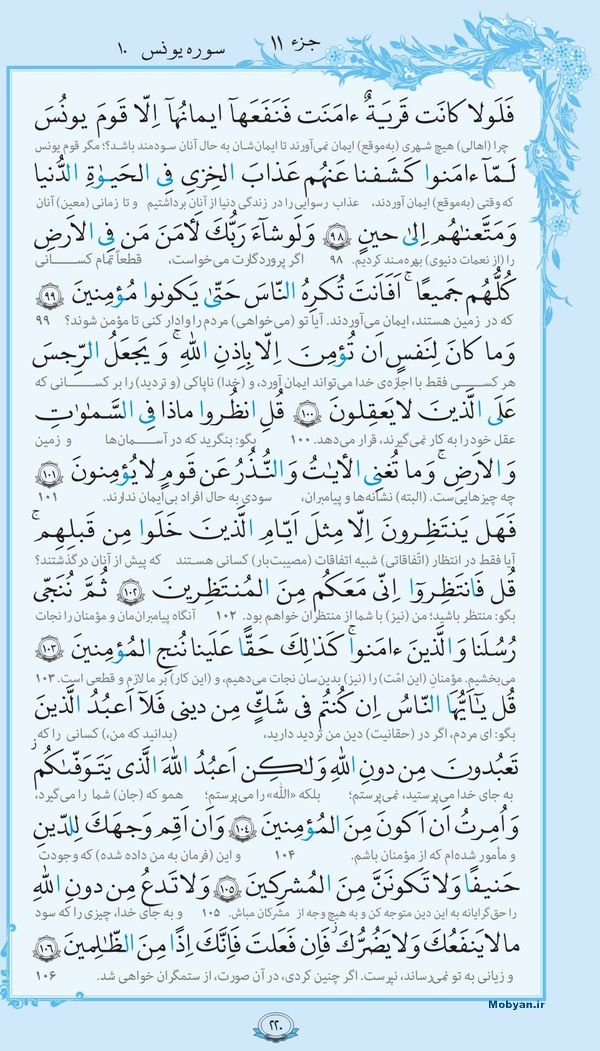 جزء ۱۱
سوره یونس ۱۰
فَلَولا كانَت قَريَةٌ ءامَنَت فَنَفَعَها ايمانُها اِلّا قَومَ يونُسَ
چرا (اهالی) هیچ شهری (به‌موقع) ایمان نمی‌آورند تا ایمان‌شان به حال آنان سودمند باشد؟! مگر قوم یونس
لَمّا ءامَنوا كَشَفنا عَنهُم عَذابَ الخِزىِ فِى الحَيوٰةِ الدُّنيا
که وقتی (به‌موقع) ایمان آوردند، عذاب رسوایی را در زندگی دنیا از آنان برداشتیم و تا زمانی (معین) آنان
وَمَتَّعنٰهُم اِلىٰ حينٍ ۹۸ وَلَو شاءَ رَبُّكَ لَأٰمَنَ مَن فِى الاَرضِ
را (از نعمات دنیوی) بهره‌مند کردیم. ۹۸ اگر پروردگارت می‌خواست، قطعاً تمام کسانی
كُلُّهُم جَميعًا ۚ اَفَاَنتَ تُكرِهُ النّاسَ حَتّىٰ يَكونوا مُؤمِنينَ ۹۹
که در زمین هستند، ایمان می‌آوردند. آیا تو (می‌خواهی) مردم را وادار کنی تا مؤمن شوند؟ ۹۹
وَما كانَ لِنَفسٍ اَن تُؤمِنَ اِلّا بِاِذنِ اللهِ ۚ وَيَجعَلُ الرِّجسَ
هر کسی فقط با اجازه‌ی خدا می‌تواند ایمان آورد، و (خدا) ناپاکی (و تردید) را بر کسانی که
عَلَى الَّذينَ لا يَعقِلونَ ۱۰۰ قُلِ انظُروا ماذا فِى السَّمٰوٰتِ
عقل خود را به کار نمی‌گیرند، قرار می‌دهد. ۱۰۰ بگو: بنگرید که در آسمان‌ها و زمین
وَالاَرضِ ۚ وَما تُغنِى الأٰيٰتُ وَالنُّذُرُ عَن قَومٍ لا يُؤمِنونَ ۱۰۱
چه چیزهایی‌ست. (البته) نشانه‌ها و پیامبران، سودی به حال افراد بی‌ایمان ندارند. ۱۰۱
فَهَل يَنتَظِرونَ اِلّا مِثلَ اَيّامِ الَّذينَ خَلَوا مِن قَبلِهِم ۚ
آیا فقط در انتظار (اتفاقاتی) شبیه اتفاقات (مصیبت‌بار) کسانی هستند که پیش از آنان درگذشتند؟
قُل فَانتَظِروا اِنّى مَعَكُم مِنَ المُنتَظِرينَ ۱۰۲ ثُمَّ نُنَجّى
بگو: منتظر باشید؛ من (نیز) با شما از منتظران خواهم بود. ۱۰۲ آنگاه پیامبران‌مان و مؤمنان را نجات
رُسُلَنا وَالَّذينَ ءامَنوا ۚ كَذٰلِكَ حَقًّا عَلَينا نُنجِ المُؤمِنينَ ۱۰۳
می‌بخشیم. مؤمنان (این امّت) را (نیز) بدین‌سان نجات می‌دهیم، و (این کار) بر ما لازم و قطعی است. ۱۰۳
قُل يٰاَيُّهَا النّاسُ اِن كُنتُم فى شَكٍّ مِن دينى فَلا اَعبُدُ الَّذينَ
بگو: ای مردم، اگر در (حقانیت) دین من تردید دارید، (بدانید که من،) کسانی را که
تَعبُدونَ مِن دونِ اللهِ وَلٰكِن اَعبُدُ اللهَ الَّذى يَتَوَفّىٰكُم ۖ
به جای خدا می‌پرستید، نمی‌پرستم؛ بلکه «الله» را می‌پرستم؛ همو که (جان) شما را می‌گیرد،
وَاُمِرتُ اَن اَكونَ مِنَ المُؤمِنينَ ۱۰۴ وَاَن اَقِم وَجهَكَ لِلدّينِ
و مأمور شده‌ام که از مؤمنان باشم. ۱۰۴ و این (فرمان به من داده شده) که وجودت
حَنيفًا وَلا تَكونَنَّ مِنَ المُشرِكينَ ۱۰۵ وَلا تَدعُ مِن دونِ اللهِ
را حق‌گرایانه به این دین متوجه کن و به هیچ وجه از مشرکان مباش. ۱۰۵ و به جای خدا، چیزی را که سود
ما لا يَنفَعُكَ وَلا يَضُرُّكَ ۖ فَاِن فَعَلتَ فَاِنَّكَ اِذًا مِنَ الظّالِمينَ ۱۰۶
و زیانی به تو نمی‌رساند، نپرست. اگر چنین کردی، در آن صورت، از ستمگران خواهی شد. ۱۰۶
۲۲۰
Mobyan.ir